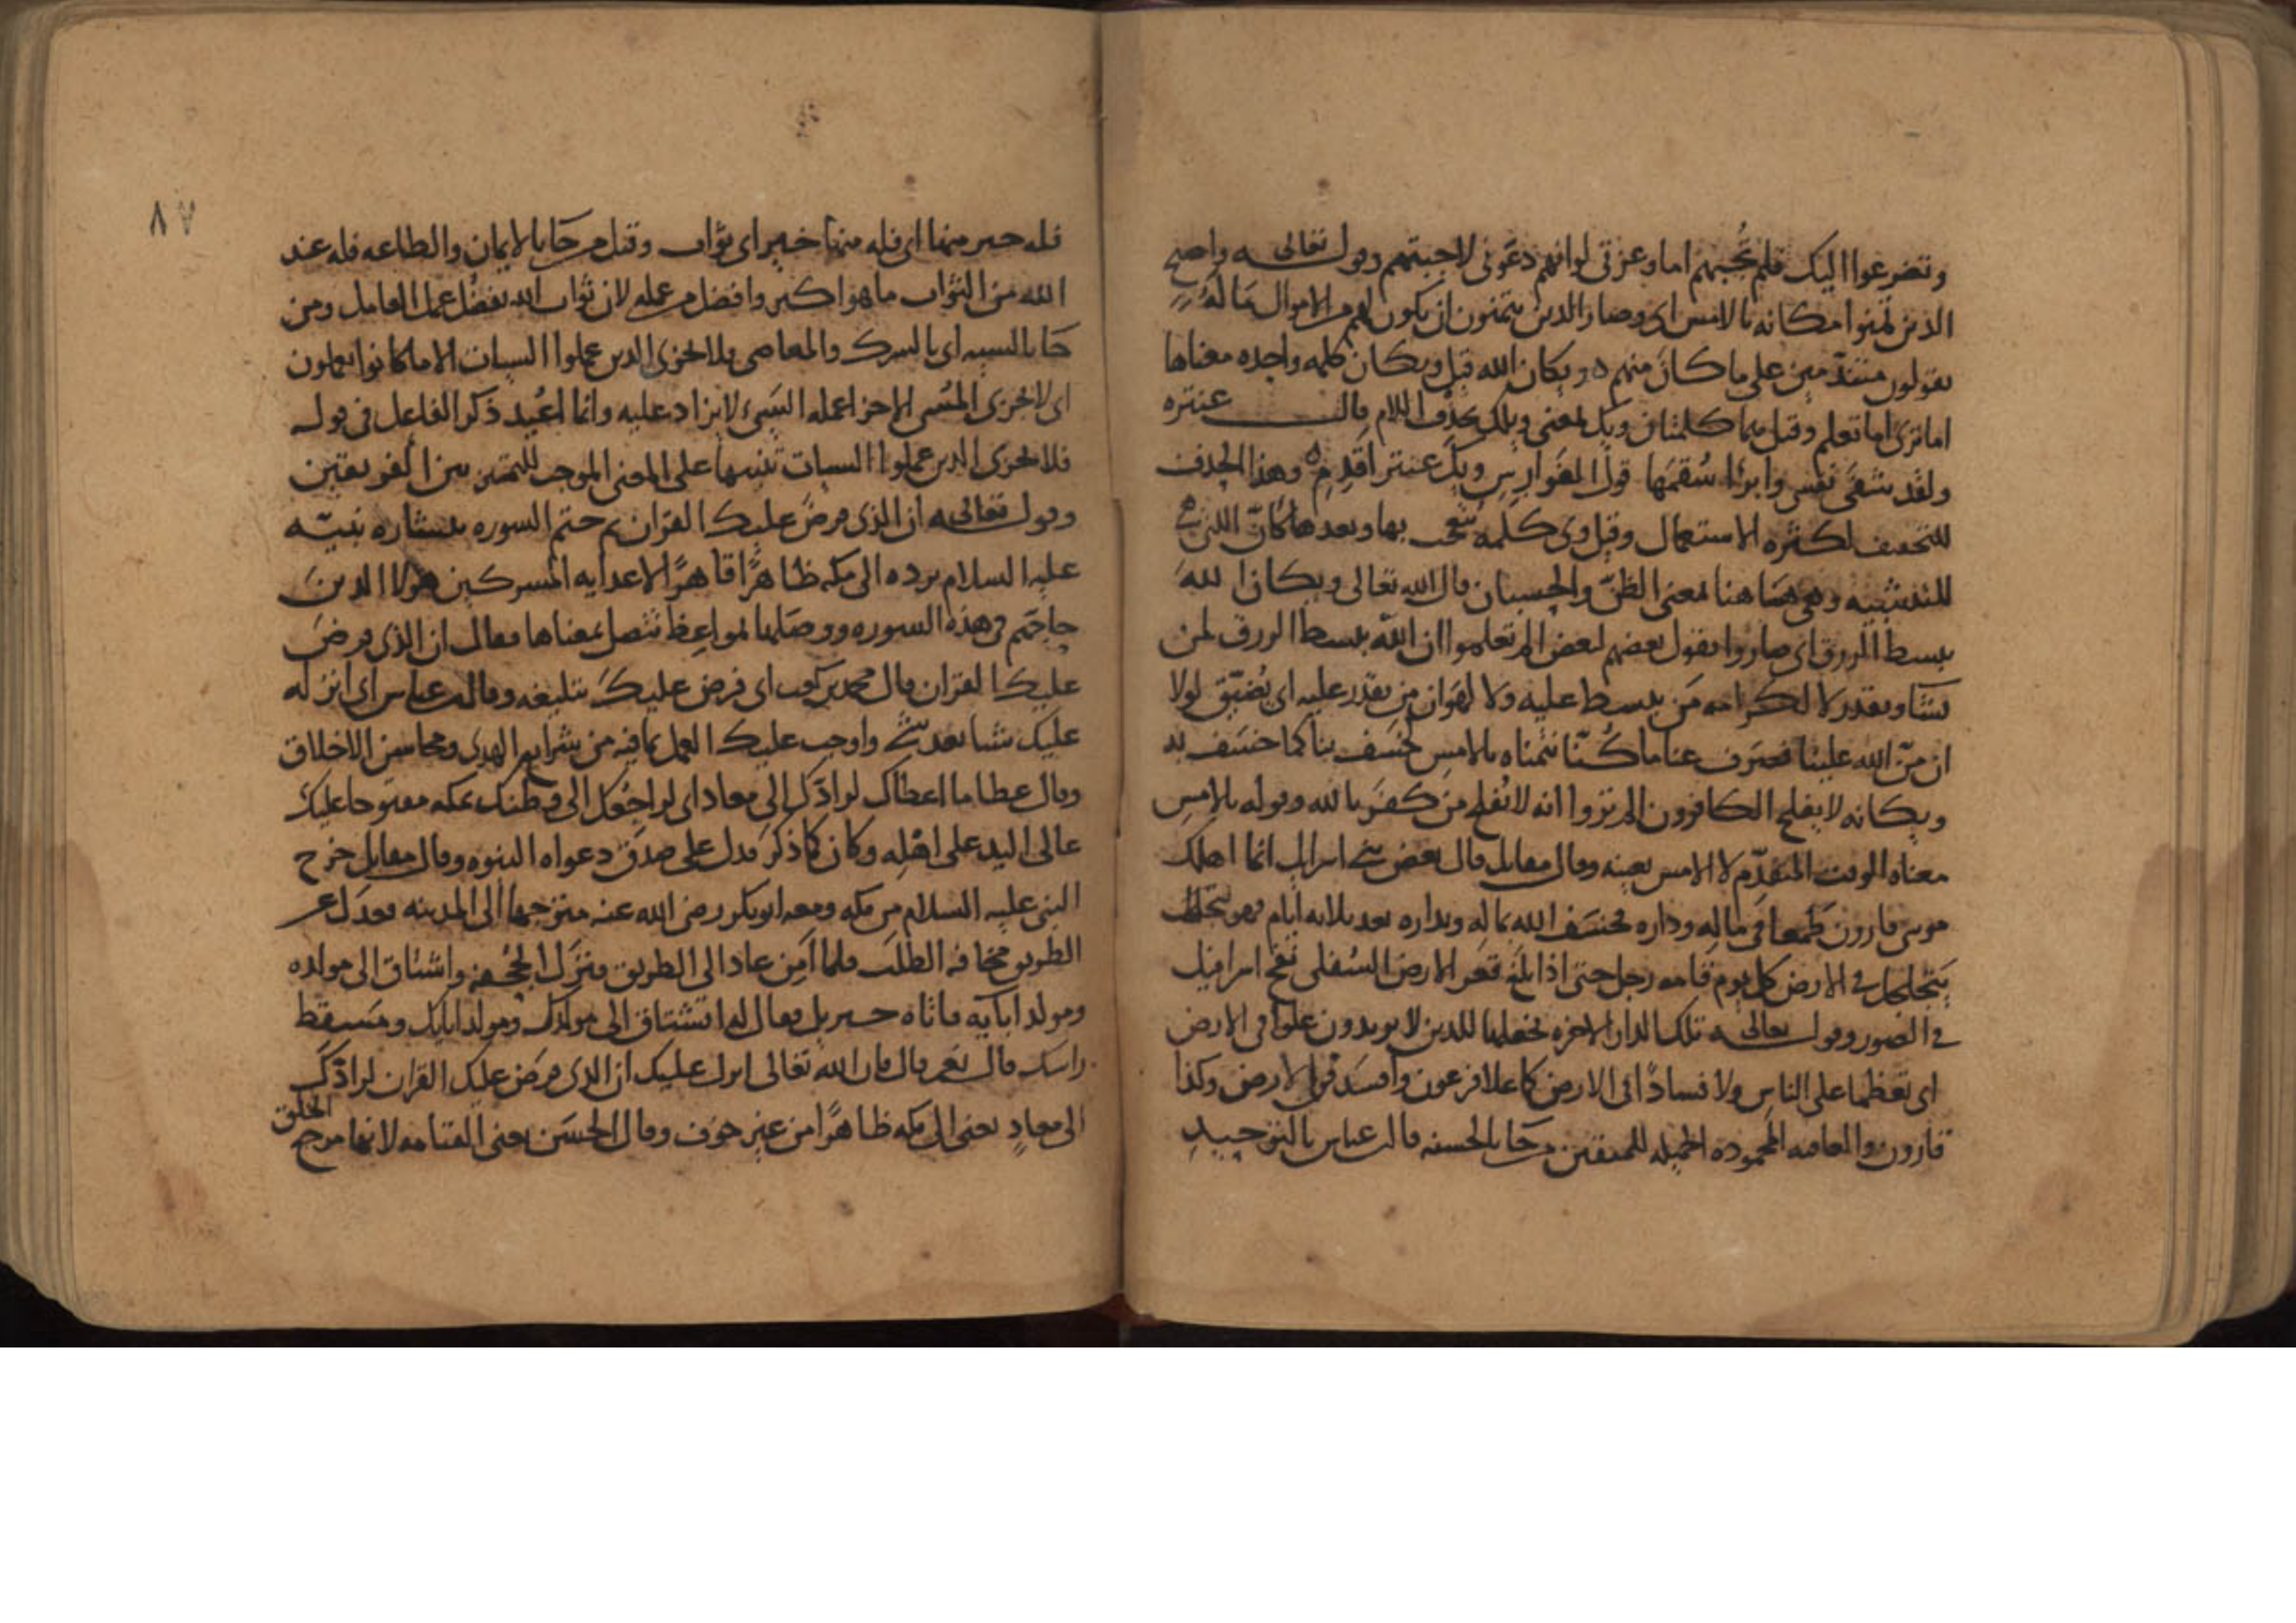 وتضرعوا اليك فلم تُجبهم اما وعزتي لو انهم دعَوني لاجبتهم وقوله تعالى واصبح
الذين تمنوا مكانه بالامس اى وصار الذين يتمنون ان يكون لهم من الاموال مَا لَهُ
يقولون متندّمين على ما كان منهم ويكان الله قيل ويكان كلمه واحده معناها
اما ترى اما تعلم وقيل هما كلمتان ويك بمعنى ويلك بحذف اللام قال عنتره
ولقد شفَى نفسي وابرا سُقمَها قول الفوارِسِ ويكَ عنتر اقدِمِ وهذا الحذف
للتخفيف لكثره الاستعمال وقيل وي كلمه تعجب بها وبعدها كانّ التي هي
للتشبيه وهي هاهنا بمعنى الظنّ والحسبان قال الله تعالى ويكان اللهَ
يبسط الرزق اى صاروا يقول بعضهم لبعض الم تعلموا ان الله يبسط الرزق لمن
يشا ويقدر لا لكرامه مَن يبسط عليه ولا لهوان من يقدر عليه اى يُضيّق لولا
ان منّ الله علينا فصرف عنا ما كُنّا نتمناه بالامسِ لخسف بنا كما خسَف به
ويكانه لا يفلح الكافرون الم تروا انه لا يُفلح مَن كفَر بالله وقوله بالامسِ
معناه الوقت المتقدّم لا الامس بعينه وقال مقاتل قال بعض بني اسرايل انما اهلك
موسى قارون طمعا في مالِه وداره فخسَف الله بماله وبداره بعد ثلاثه ايام فهو يتجلجل
يتجلجل في الارض كل يوم قامه رجل حتى اذا بلغ قعر الارض السُفلى نفخ اسرافيل
في الصور وقوله تعالى تلك الدار الاخره نجعلها للذين لا يريدون علوا في الارض
اى تعظما على الناسِ ولا فسادًا في الارض كما علا فرعون وافسَد في الارض وكذا
قارون والعاقبه المحموده الجميله للمتقين من جَا بالحسنه قال ابن عباس بالتوحيدِ
٨٧
فله خير منها اى فله منها خير اى ثواب وقيل من جَا بالايمان والطاعه فله عند
الله من الثواب ما هو اكبر وافضل من عمله لان ثواب الله يفضُل عمل العامل ومن
جَا بالسييه اى بالشرك والمعاصى فلا يجزى الذين عملوا السيات الا ما كانوا يعملون
اى لا يجزى المُسى الا جزا عمله السَيئ لا يزاد عليه وانما اعُيد ذكر الفاعل في قوله
فلا يجزى الذين عملوا السيات تنبيها على المعنى الموجب للتمييز بين الفريقين
وقوله تعالى ان الذي فرضَ عليك القران ثم ختم السوره ببشاره نبيّه
عليه السلام برده الى مكه ظاهرًا قاهرًا لاعدايه المشركين هولا الذينَ
حاجّهم في هذه السوره ووصَلها بمواعِظ تتصل بمعناها فقال ان الذي فرضَ
عليك القران قال محمد بن كعب اى فرض عليكَ تبليغه وقال ابن عباس اى انزله
عليك شيا بعد شي واوجب عليك العمل بما فيه من شرايع الهدى ومحاسن الاخلاق
وقال عطا ما اعطاك لرادّكَ الى معاد اى لراجعُك الى وطنك بمكه مفتوحا عليك
عالى اليد على اهلِه وكان كما ذكرَ فدل على صدق دعواه النبوه وقال مقاتل خرج
النبي عليه السلام من مكه ومعه ابو بكر رضى الله عنه متوجها الى المدينه فعدَل عن
الطريق مخافه الطلَب فلما امِن عاد الى الطريق فنزَل الجُحفه واشتاق الى مولده
ومولد ابآيه فاتاه جبريل فقال له اتشتاق الى مولدِك ومولد ابايك ومَسقط
راسك قال نعم قال فان الله تعالى انزل عليك ان الذي فرَض عليك القران لرادّكَ
الى معادٍ يعنى الى مكه ظاهرًا من غير خوف وقال الحسَن يعنى القيامه لانها مرجع الخلق